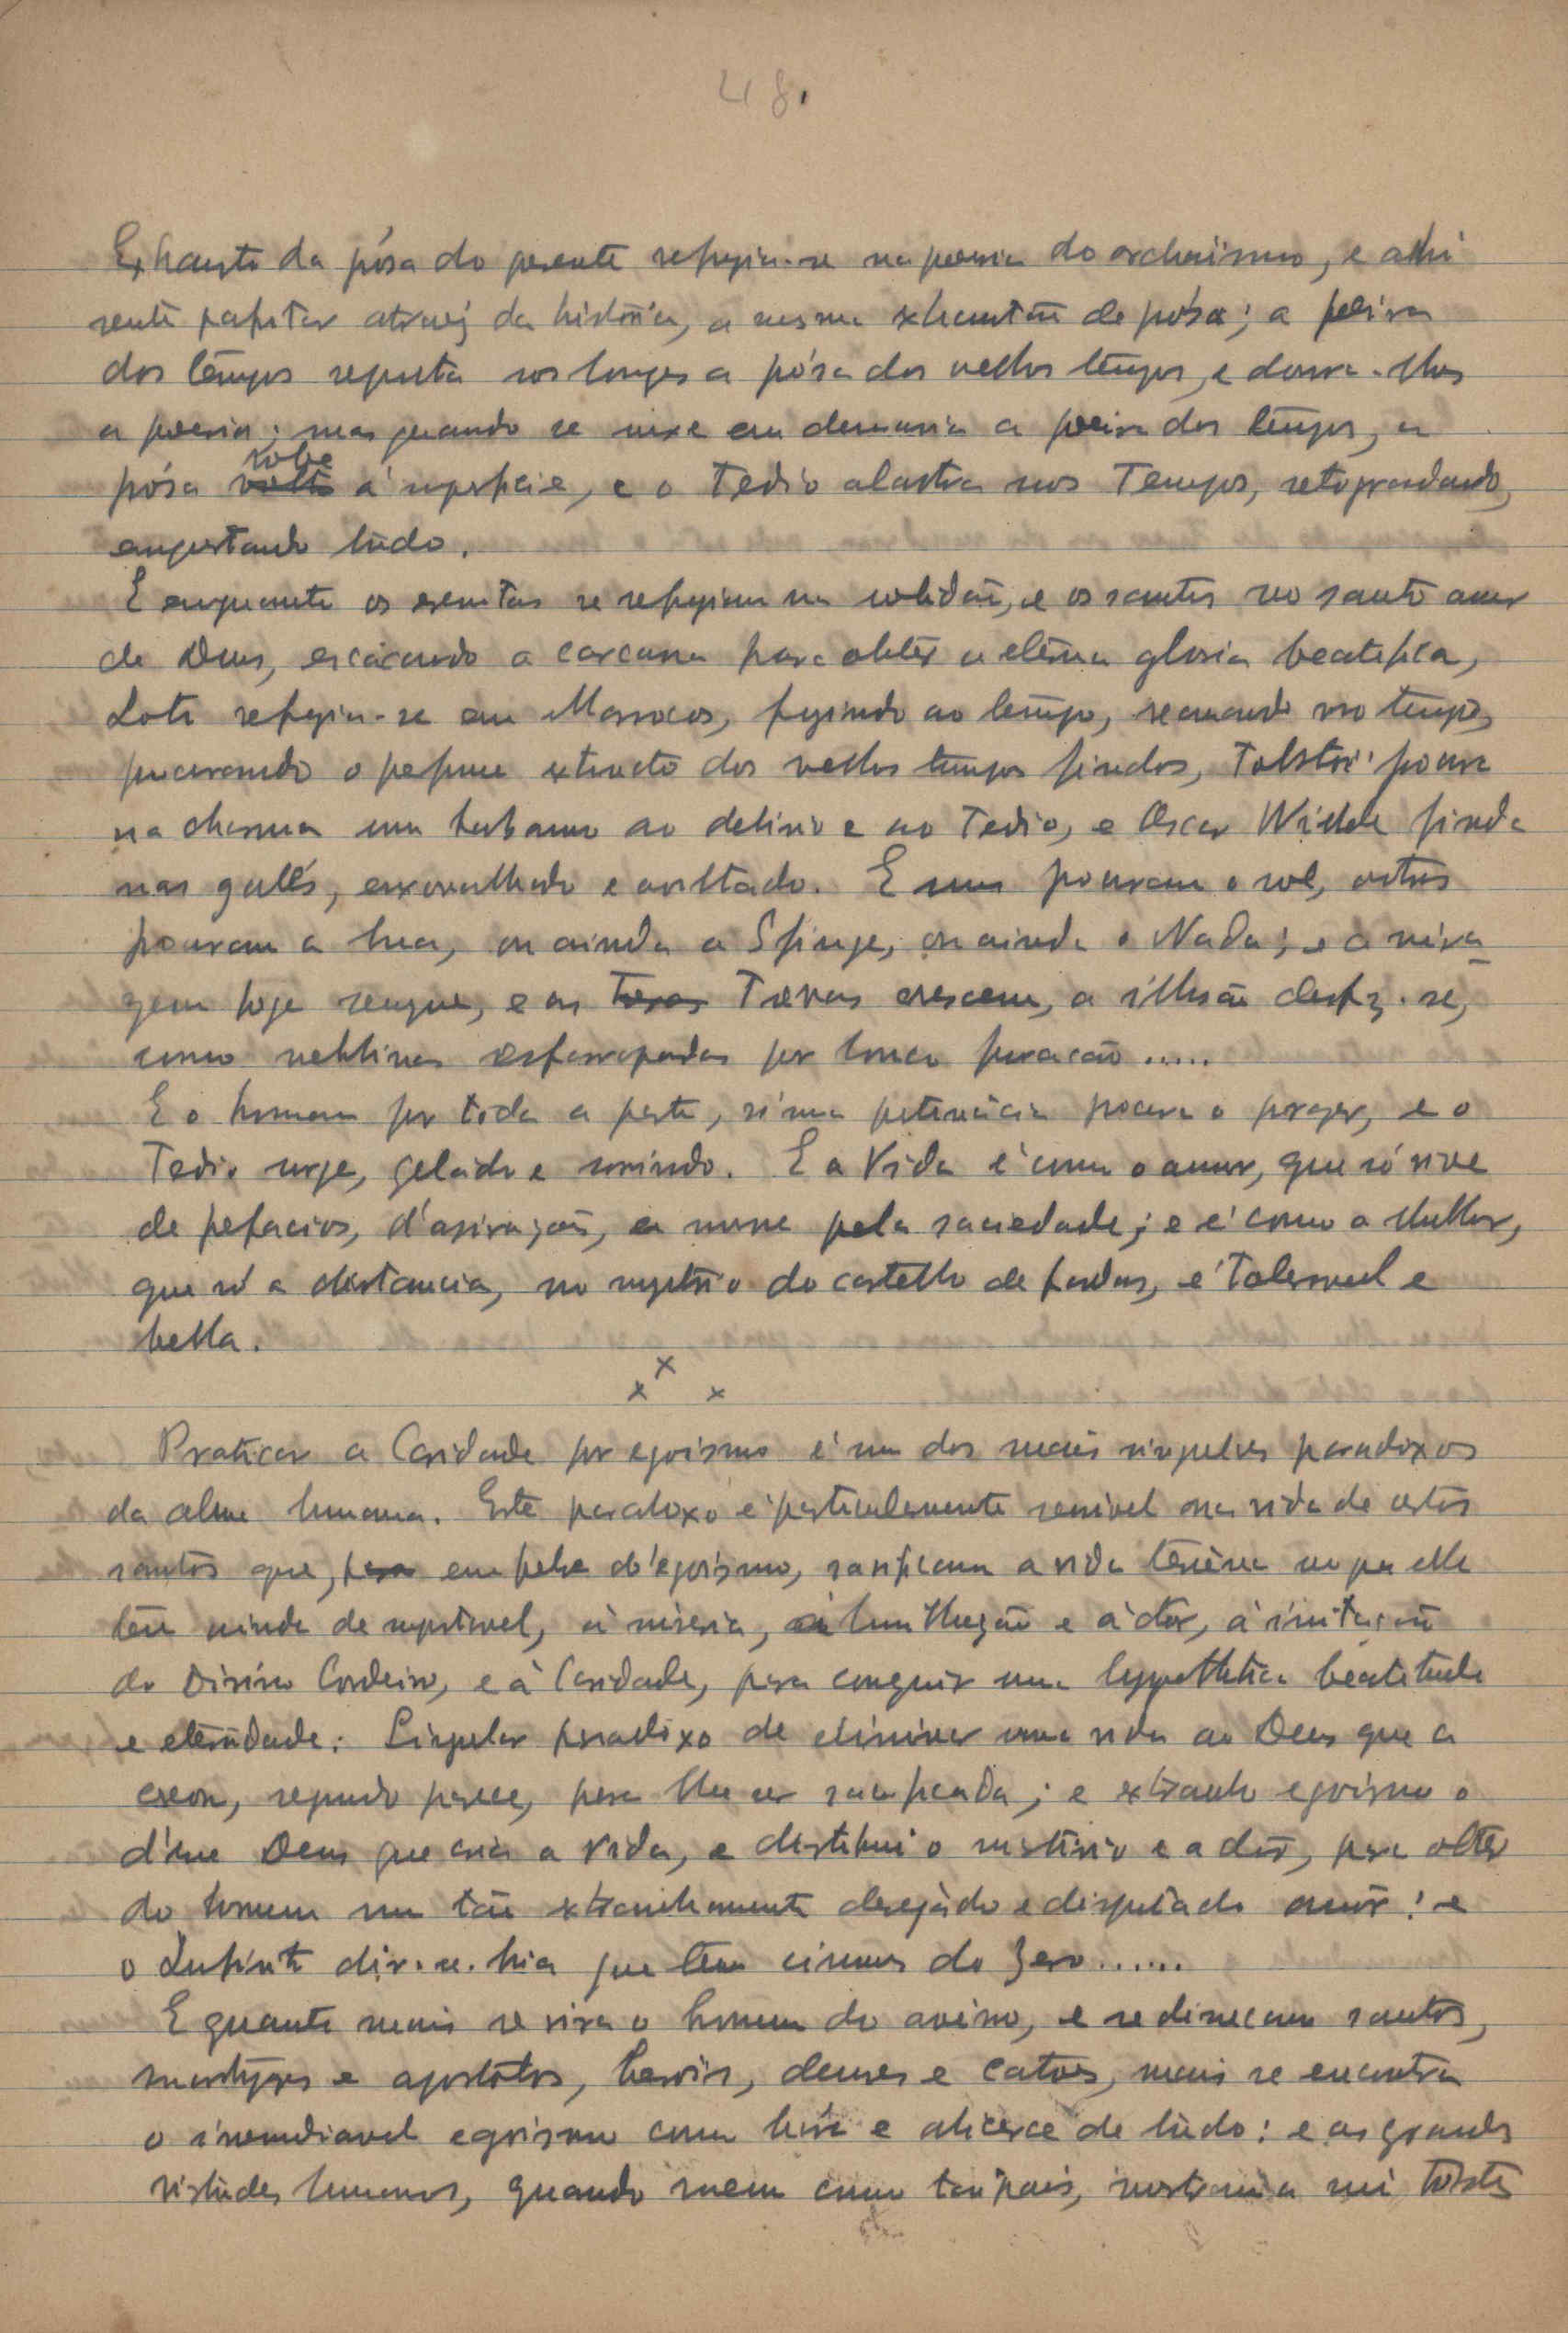 48.
Exhausto da pósa do presente refugia-se na poesia do archaismo, e alhi
sente palpitar atravez da história, a mesma exhaustão de pósa; a poeira
dos tempos sepulta nos longes a pósa dos velhos tempos, e doura-lhes
a poesia; mas quando se mexe em demasia a poeira dos tempos, a
pósa sobe á superficie, e o Tedio alastra nos Tempos, retrogradando,
angustando tudo.
E emquanto os eremitas se refugiam na solidão, e os santos no santo amor
de Deus, a carcassa para obter a eterna gloria beatifica,
Loti refugia-se em Marrocos, fugindo ao tempo, recuando no tempo,
procurando o perfume extracto dos velhos tempos findos, Tolstoi procura
na charrua um balsamo ao delirio e ao Tedio, e Oscar Wilde finda
nas galés, enxovalhado e avilltado. E uns procuram o sol, outros
procuram a lua, ou ainda a Sfinge, ou ainda o Nada; e a mira-
gem foge sempre, e as Trevas crescem, a illusão desfaz-se,
como neblinas esfarrapadas por louco furacão.....
E o homem por toda a parte, n'uma pertinácia procura o prazer, e o
Tedio surge, gelado e sorrindo. E a Vida é como o amor, que só vive
de prefacios, d'aspiração, e morre pela saciedade; e é como a Mulher,
que só a distancia, no mysterio do castello de fadas, é toleravel e
bella.
x x x
Praticar a Caridade por egoismo é um dos mais singulares paradoxos
da alma humana. Este paradoxo é particularmente sensivel na vida de certos
santos que, em febre d'egoismo, sacrificam a vida terrena no que ella
tem ainda de suportavel, á miseria, á humilhação e á dor, á imitação
do Divino Cordeiro, e á Caridade, para conseguir uma hypothetica beatitude
e eternidade. Singular paradoxo de eliminar uma vida ao Deus que a
creou, segundo parece, para lhe ser sacrificada; e extranho egoismo o
d'um Deus que cria a vida, e distribui o martirio e a dôr, para obter
do homem um tão extranhamente desejado e disputado amor! e
o Infinito dir-se-hia que tem ciumes do Zero......
E quanto mais se vira o homem do avesso, e se dissecam santos,
martyres e apostolos, herois, deuses e catões, mais se encontra
o irremediavel egoismo como base e alicerce de tudo: e as grandes
virtudes humanas, quando ruem como taipais, mostram a nú tristes